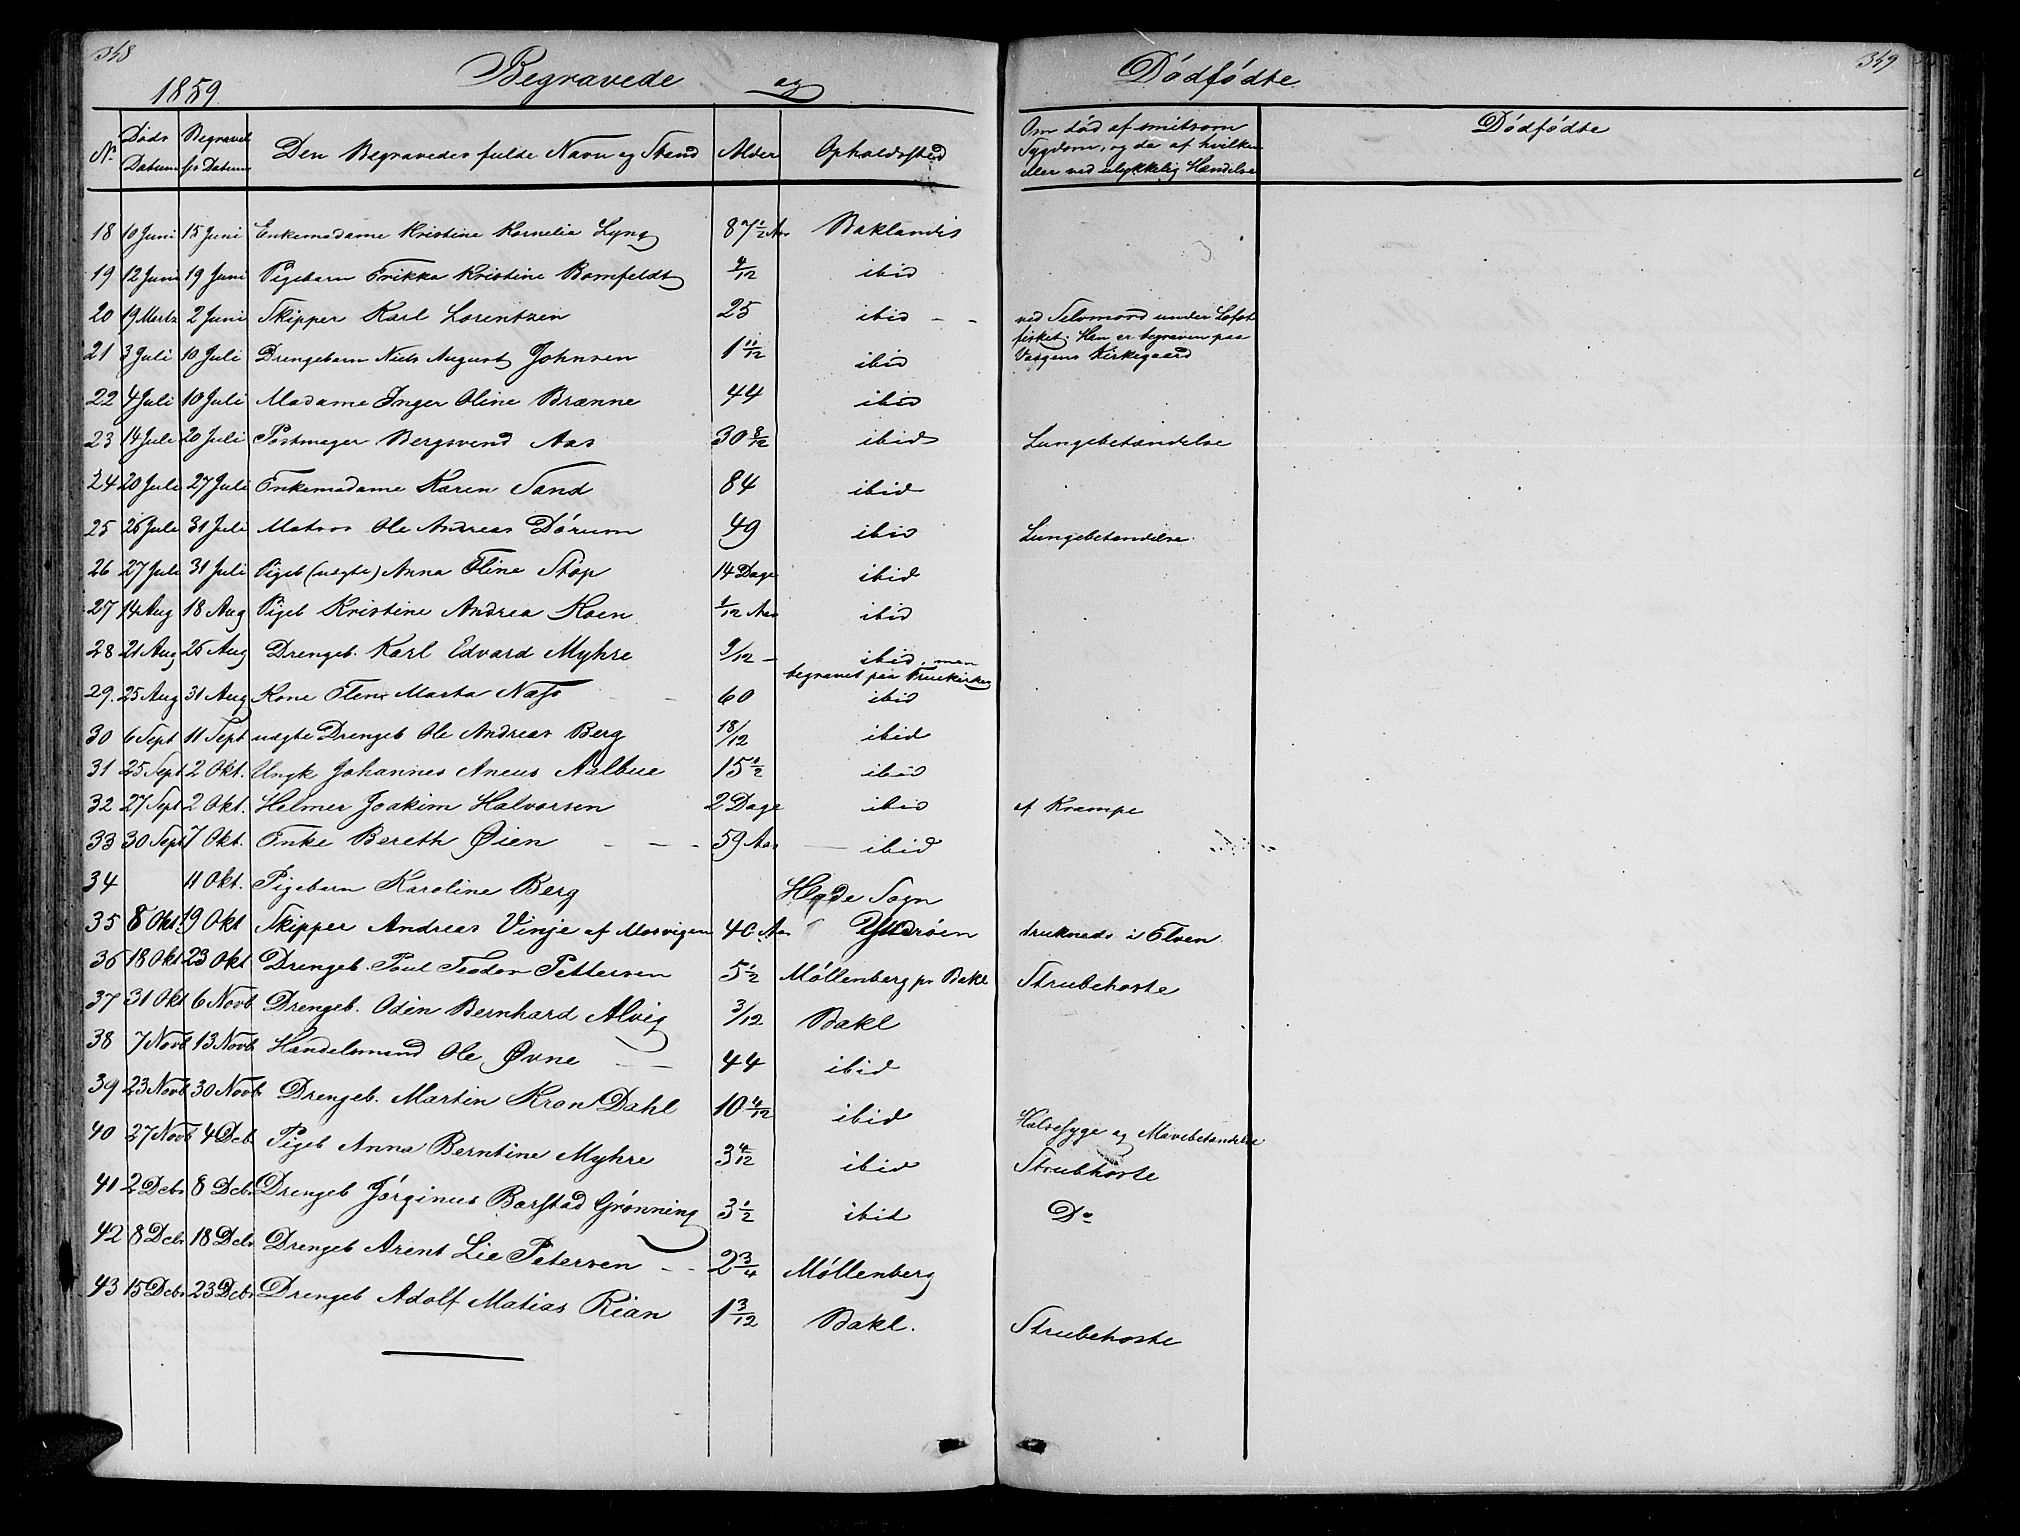 348
1859
Begravede og Dødfødte
349
No
Døds Datum
Begravelses Datum
Den Begravedes fulde Navn og Stand
Alder
Opholdssted
Om død af smitsom Sygdom, og da af hvilken eller ved ulykkelig Hændelse
Dødfødte
18 10 Juni 15 Juni Enkemadame Kristine Kornelia Lyng 87 1/2 Aar Baklandet
19 12 Juni 19 Juni Pigebarn Frikka Kristine Bomfeldt 4/12 ibid
20 19 Marts 2 Juni Skipper Karl Lorentzen 25 ibid - - ved Selvmord under Lofot fisket. Han er begraven paa Vaagens Kirkegaard
21 3 Juli 10 Juli Drengebarn Niels August Johnsen 1 11/12 ibid
22 4 Juli 10 Juli Madame Inger Oline Brænne 44 ibid
23 14 Juli 20 Juli Postmager Bergsvend Aas 30 8/12 ibid Lungebetændelse
24 20 Juli 27 Juli Enkemadame Karen Sand 84 ibid
25 26 Juli 31 Juli Matros Ole Andreas Dørum 49 ibid Lungebetændelse
26 27 Juli 31 Juli Pigeb (uægte) Anna Eline Stop 14 Dage ibid
27 14 Aug 18 Aug Pigeb Kristine Andrea Koen 1/12 Aar ibid
28 21 Aug 25 Aug Drengeb. Karl Edvard Myhre 9/12 - ibid, men begravet paa Fruekirkeg
29. 25 Aug 31 Aug Kone Elen Marta Næss - - 60 ibid
30 6 Sept 11 Sept uægte Drengeb Ole Andreas Berg 18/12 ibid
31 25 Sept 2 Okt. Ungk Johannes Aneus Aalbue 15 1/2 ibid
32 27 Sept 2 Okt. Helmer Joakim Halvorsen 2 Dage ibid af Krampe
33 30 Sept 7 Okt. Enke Bereth Øien - - - 59 Aar - ibid
34 11 Okt. Pigebarn Karoline Berg Hegde Sogn
35 8 Okt. 19 Okt Skipper Andreas Vinje af Mosvigen 40 Aar Ytterøen druknede i Elven
36 18 Okt 23 Okt Drengeb. Poul Teodor Pettersen 5 1/2 Møllenberg pr Bakl Strubehoste
37 31 Okt 6 Novb. Drengeb. Odin Bernhard Alvig 3/12 Bakl
38 7 Novb 13 Novb Handelsmand Ole Øvne - - 44 ibid
39 23 Novb 30 Novb Drengeb. Martin Kron Dahl 10 4/12 ibid Halssyge og Mavebetændelse
40 27 Novb 4 Decb Pigeb Anna Berntine Myhre 3 4/12 ibid Strubhoste
41 2 Decbr 8 Decbr Drengeb Jørginus Barstad Grønning 3 1/2 ibid Do
42 8 Decbr 18 Decbr Drengeb Arent Lie Petersen - - 2 3/4 Møllenberg
43 15 Decbr 23 Decbr Drengeb Adolf Matias Rian 1 3/12 Bakl. Strubehoste